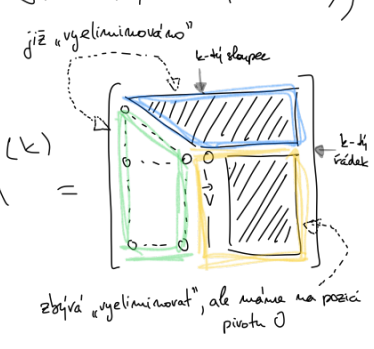 již „vyeliminováno"
k-tý sloupec
(k)
=
0
k-tý
řádek
zbývá „vyeliminovat", ale máme na pozici
pivotu 0